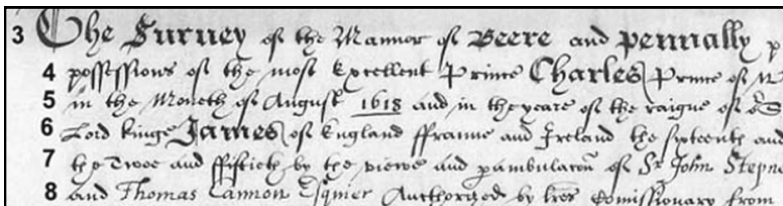 3 The Survey of the Mannor of Beere and Pennally p
4 possessions of the most Excellent Prince Charles Prince of W
5 in the Moneth of August 1618 and in the yeare of the raigne of
6 Lord kinge James of England ffraunce and Ireland the sixteenth and
7 the Twoe and ffiftieth by the viewe and pambulacoñ of Sr John Stepn
8 and Thomas Cannon Esquier Authorized by lres Comissionary from